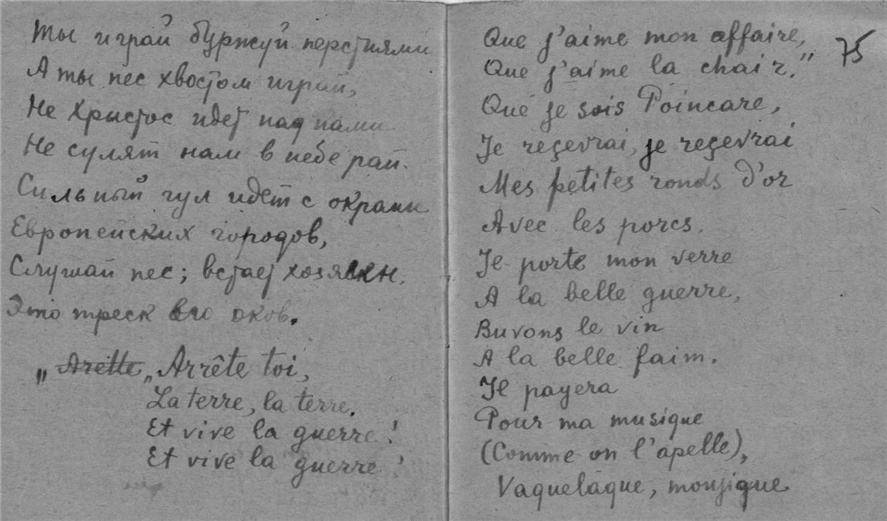 Ты играй буржуй перстнями
А ты пес хвостом играй,
Не Христос идет над нами
Не сулят нам в небе рай.
Сильный гул идет с окраин
Европейских городов,
Слушай пес; встает хозяин.
Это треск его оков.
„Arette „Arrête toi,
La terre, la terre.
Et vive la guerre!
Et vive la guerre!
75
Que j'aime mon affaire,
Que j'aime la chair."
Que je sois Poincare,
Je reçevrai, je reçevrai
Mes petites ronds d'or
Avec les porcs.
Je porte mon verre
A la belle guerre,
Buvons le vin
A la belle faim.
Il payera
Pour ma musique
(Comme on l'apelle),
Vaquelaque, moujique